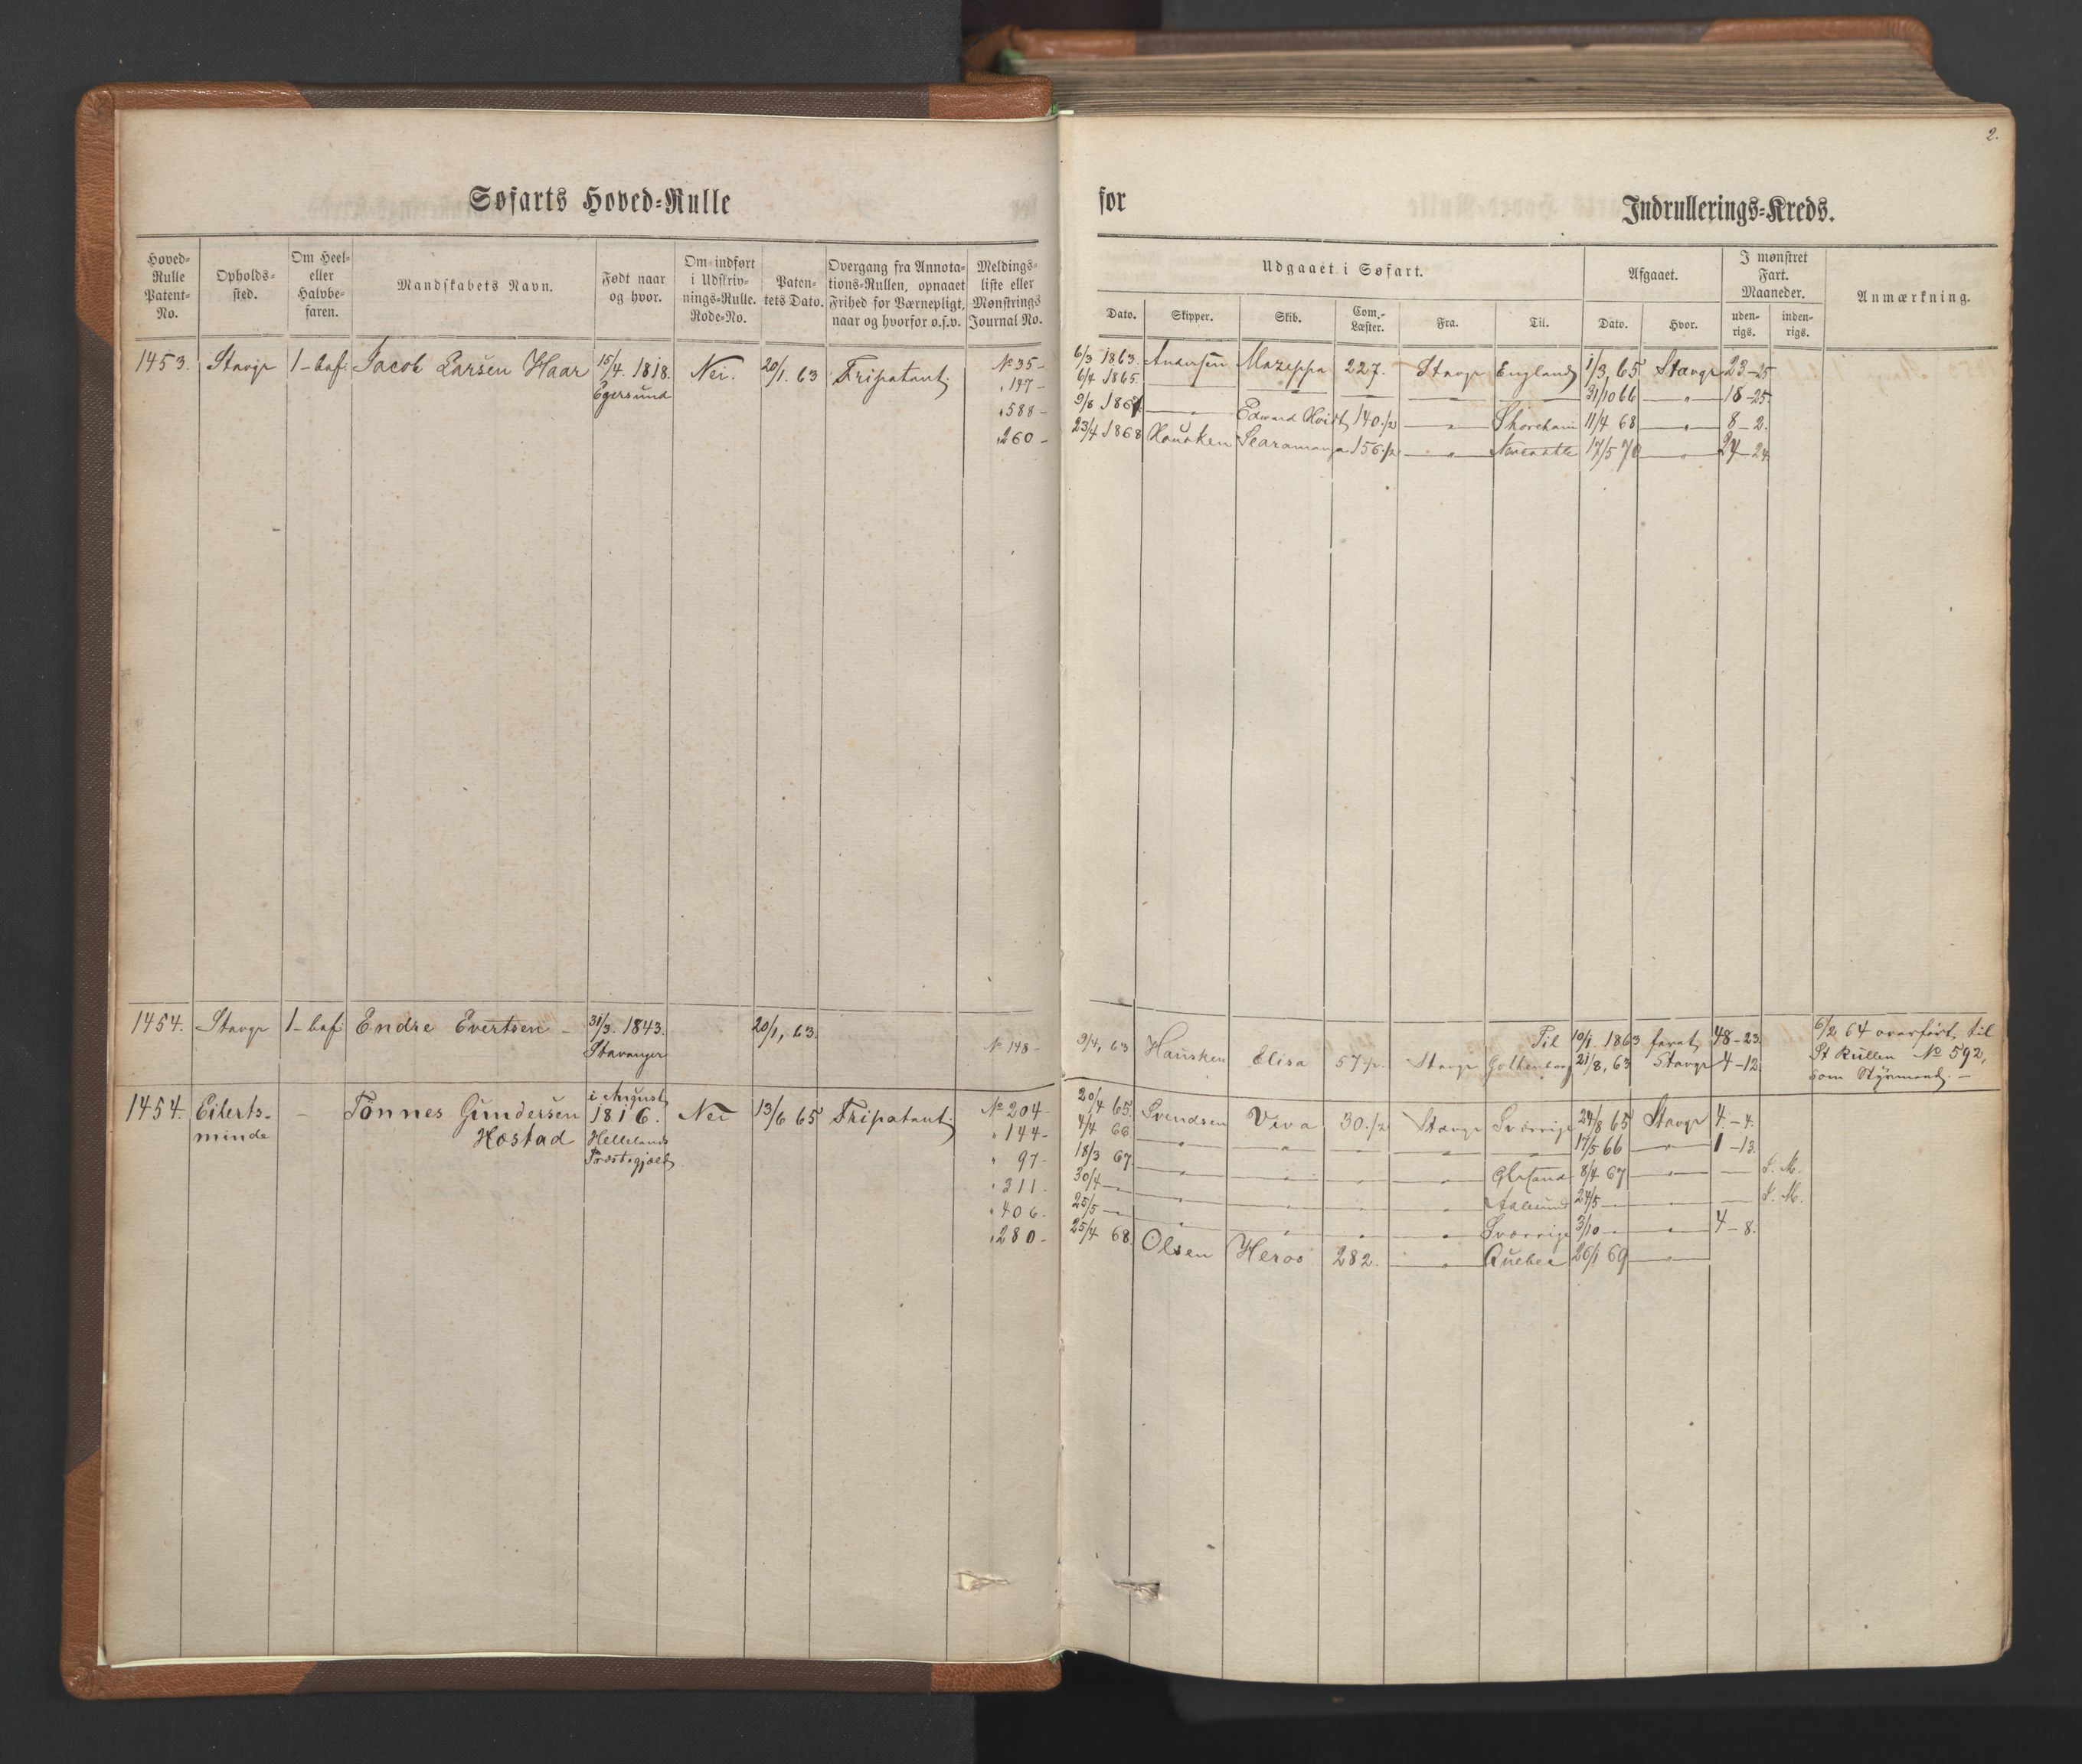 2.
Søfarts Hoved-Rulle
for
Indrullerings-Kreds.
Hoved-Rulle Patent-No.
Opholds-sted.
Om Heel- eller Halvbe-faren.
Mandskabets Navn.
Født naar og hvor.
Om indført i Udskriv-nings-Rulle. Rode-No.
Paten-tets Dato.
Overgang fra Annota-tions-Rullen, opnaaet Frihed for Værnepligt, naar og hvorfor o.s.v.
Meldings-liste eller Mønstrings Journal No.
Udgaaet i Søfart.
Afgaaet.
I mønstret Fart. Maaneder.
Anmærkning.
Dato.
Skipper.
Skib.
Com.-Læster.
Fra.
Til.
Dato.
Hvor.
uden-rigs.
inden-rigs.
1453. Stavgr 1-baf. Jacob Larsen Haar 15/4. 1818. Nei. 20/1. 63 Fripatent. No 35- 6/3 1863. Andersen Mazeppa 227. Stavgr England 1/3. 65 Stavgr 23-25
Egersund " 147- 6/4 1865. — — — — 31/10 66 — " — 18-25.
" 588- 9/8 1867 — " — Edward Hvidt 140./2 — " — Shoreham 11/4 68 — " — 8-2.
" 260- 23/4 1868 Hausken Scaramanga 156./2 — " — Newcastle 17/5 70 — " — 24-24
1454. Stavgr 1-baf. Endre Evertsen - 31/3. 1843. 20/1, 63. Til 10/1. 1863 faret 48-23. 6/2 64 overført til
Stavanger No 148- 9/4, 63 Hausken Elisa 57 Stavgr Gothenborg 21/8, 63 Stavgr 4-12 St Rullen No 592,
som Styrmand. —
1454. Eilerts- - Tönnes Gundersen i August 1816. Nei 13/6 65 Fripatent. No 204- 20/4 65. Svendsen Viva 30./2 Stavgr Sverrige 24/8 65 Stavgr 4-4.
minde Hostad Hellelands " 144- 4/4 66 — " — — " — — " — — " — — 17/5 66 — " — 1-13.
Præstegjæld " 97- 18/3 67. — " — — " — — " — — " — 8/4 67 — " — — F. M.
" 311. 30/4 — " — — " — — " — — " — — " — Aalesund 24/5 — — " — — F. M.
" 406. 25/5 — " — — " — — " — — " — — " — Sverrige 3/10 — — " — 4-8.
" 280- 25/4 68. Olsen Heros 282. — " — Quebec 26/1 69 — " —